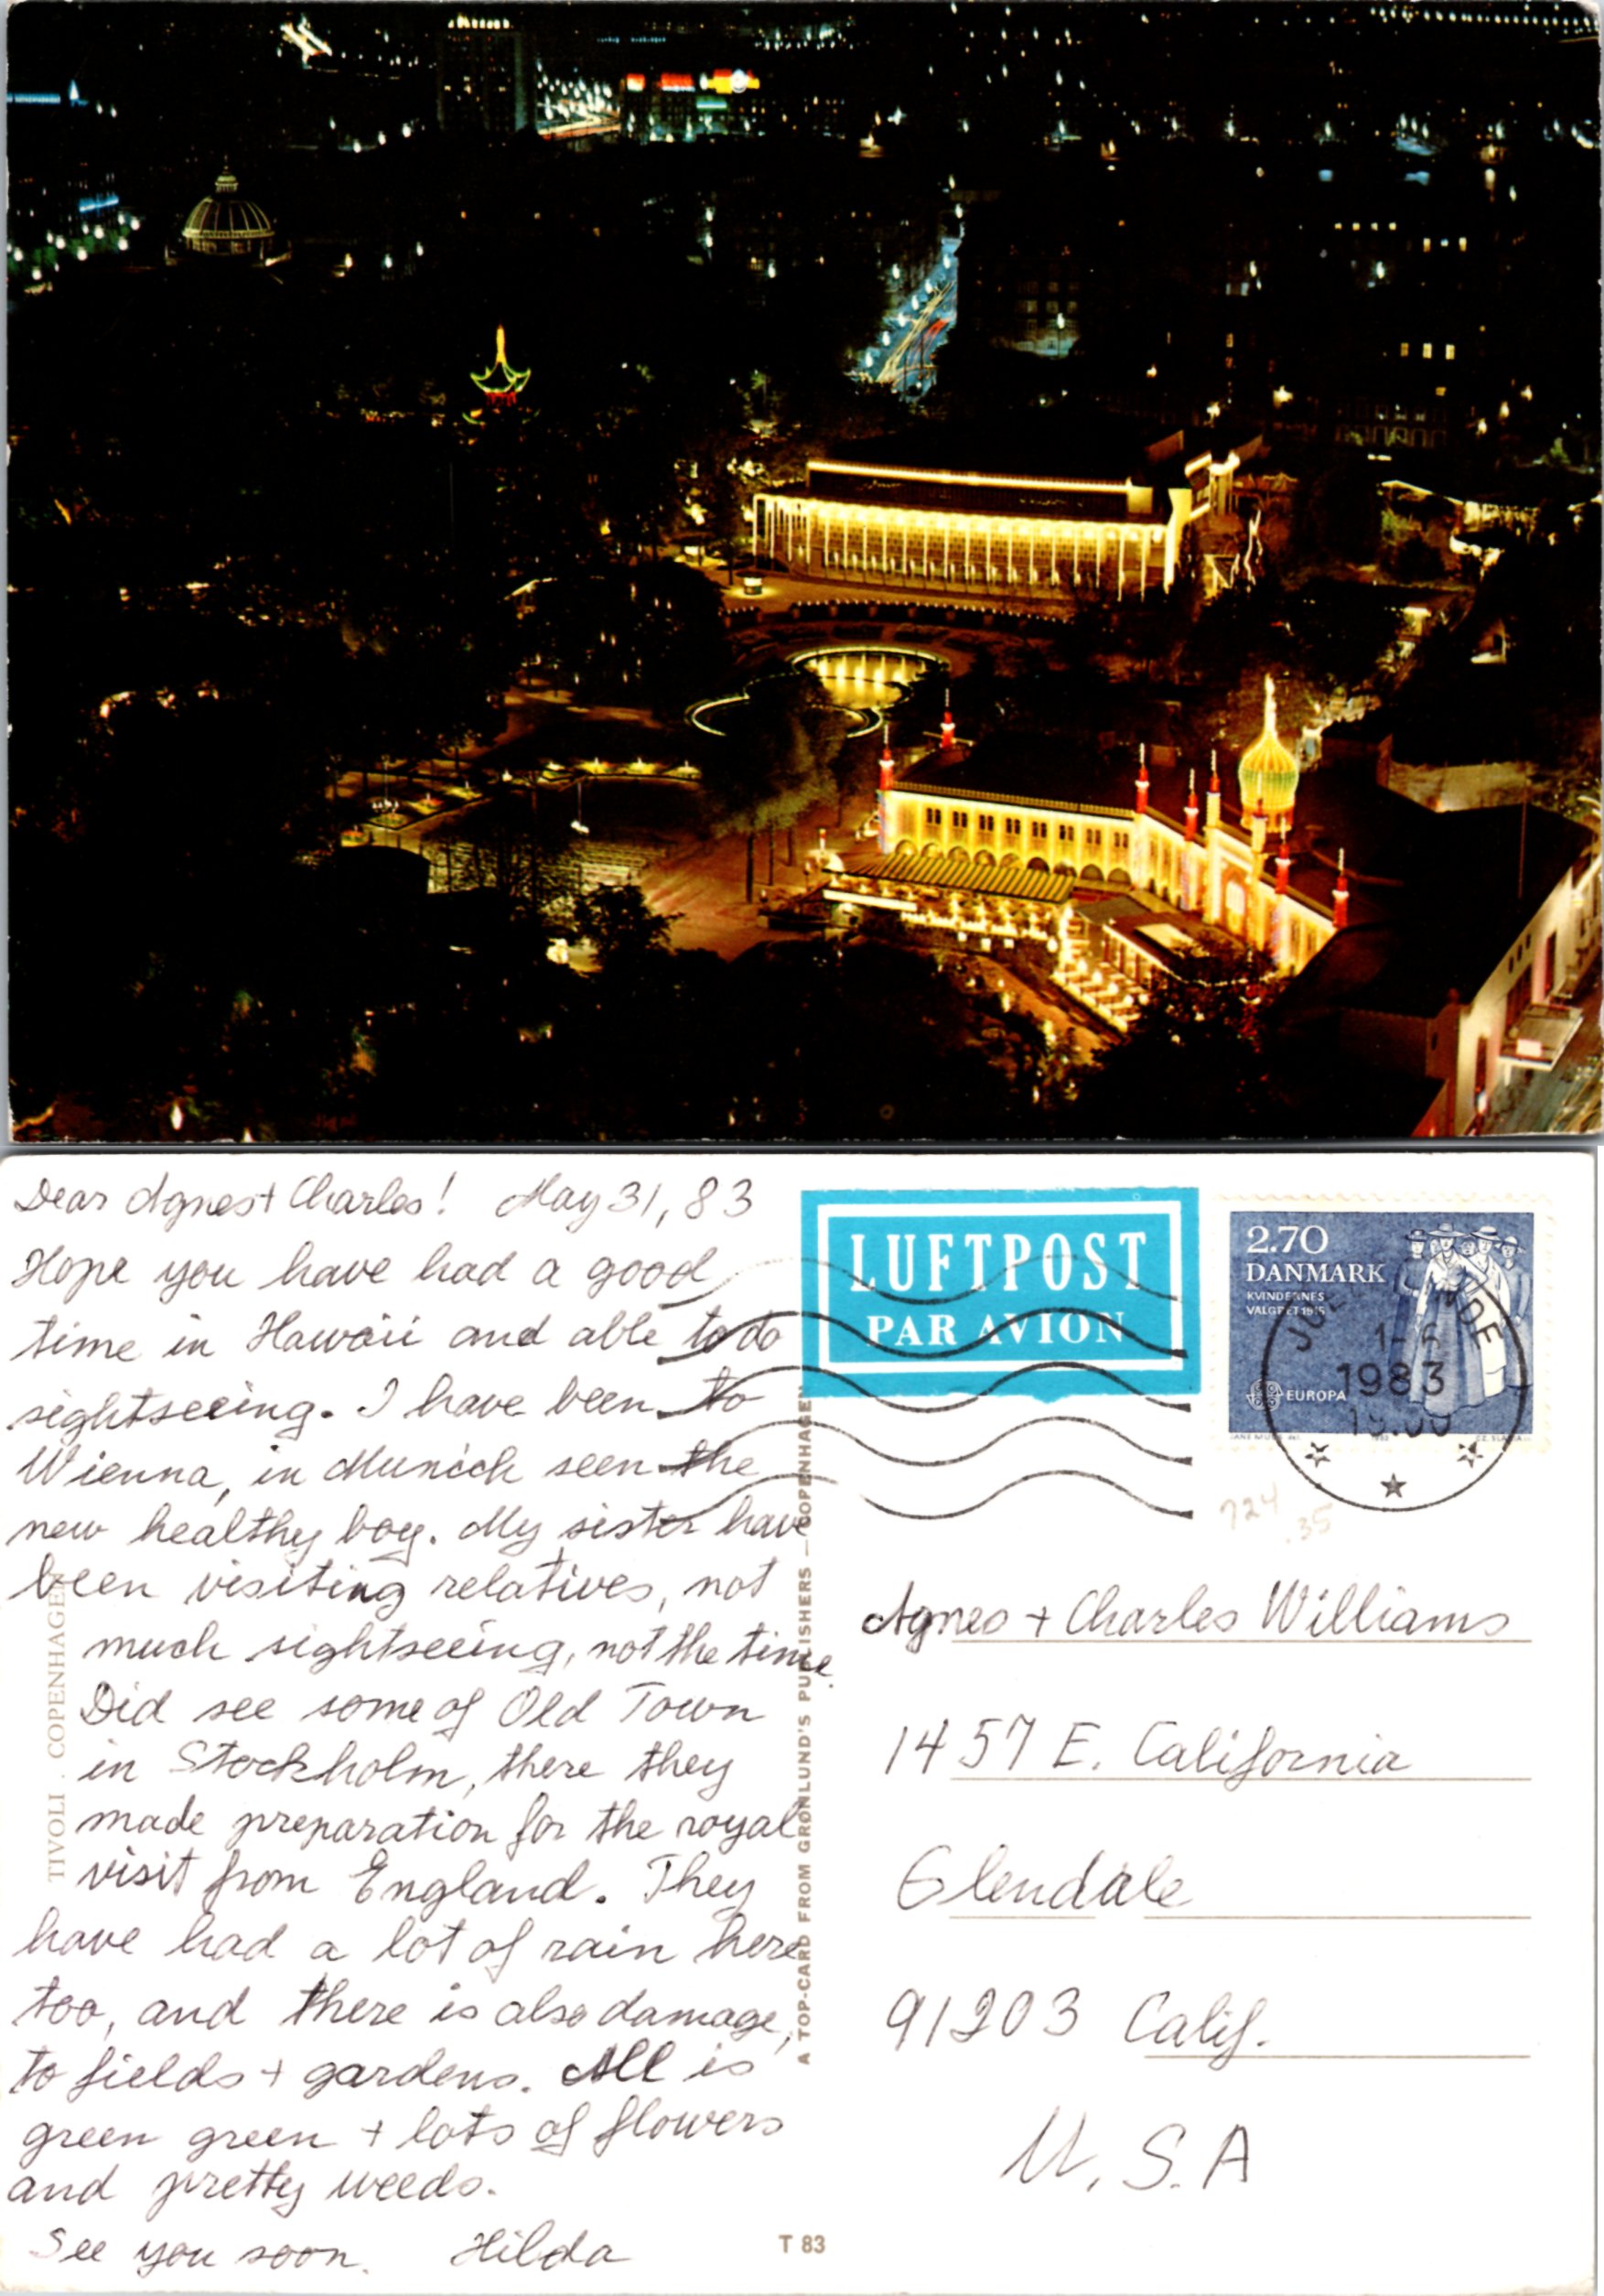 Dear Agnes + Charles! May 31, 83
Hope you have had a good
time in Hawaii and able to do
sightseeing. I have been to
Wienna, in Munich seen the
new healthy boy. My sister have
been visiting relatives, not
much sightseeing, not the time.
Did see some of Old Town
in Stockholm, there they
made preparation for the royal
visit from England. They
have had a lot of rain here
too, and there is also damage,
to fields + gardens. All is
green green + lots of flowers
and pretty weeds.
See you soon. Hilda
TIVOLI . COPENHAGEN
A TOP-CARD FROM GRØNLUND'S PUBLISHERS — COPENHAGEN
T 83
LUFTPOST
PAR AVION
2.70
DANMARK
KVINDERNES
VALGRET 1915
EUROPA
1-6
1983
724
.35
Agnes + Charles Williams
1457 E. California
Glendale
91203 Calif.
U.S.A